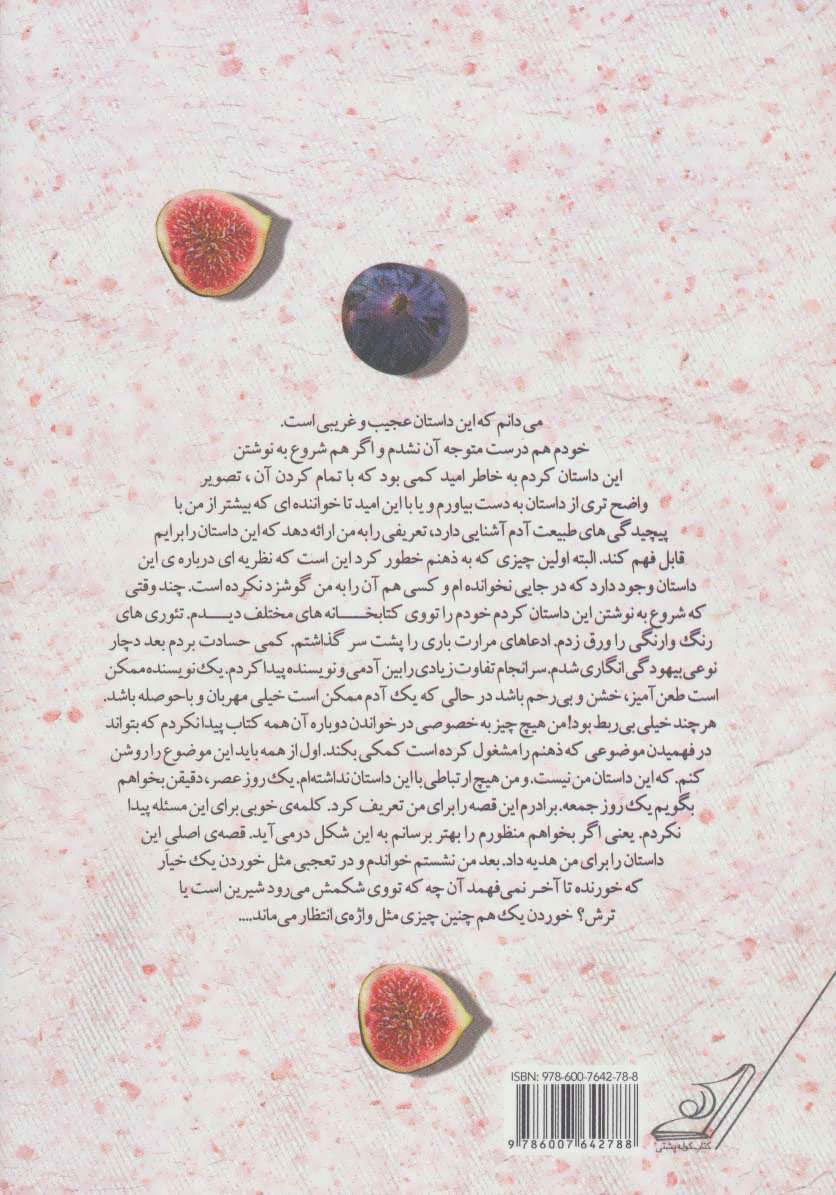 می دانم که این داستان عجیب و غریبی است.
خودم هم درست متوجه آن نشدم و اگر هم شروع به نوشتن
این داستان کردم به خاطر امید کمی بود که با تمام کردن آن ، تصویر
واضح تری از داستان به دست بیاورم و یا با این امید تا خواننده ای که بیشتر از من با
پیچیدگی های طبیعت آدم آشنایی دارد، تعریفی را به من ارائه دهد که این داستان را برایم
قابل فهم کند. البته اولین چیزی که به ذهنم خطور کرد این است که نظریه ای درباره ی این
داستان وجود دارد که در جایی نخوانده ام و کسی هم آن را به من گوشزد نکرده است. چند وقتی
که شروع به نوشتن این داستان کردم خودم را تووی کتابخانه های مختلف دیدم. تئوری های
رنگ وارنگی را ورق زدم. ادعاهای مرارت باری را پشت سر گذاشتم. کمی حسادت بردم بعد دچار
نوعی بیهودگی انگاری شدم. سرانجام تفاوت زیادی را بین آدمی و نویسنده پیدا کردم. یک نویسنده ممکن
است طعن آمیز، خشن و بی‌رحم باشد در حالی که یک آدم ممکن است خیلی مهربان و باحوصله باشد.
هر چند خیلی بی‌ربط بود! من هیچ چیز به خصوصی در خواندن دوباره آن همه کتاب پیدا نکردم که بتواند
در فهمیدن موضوعی که ذهنم را مشغول کرده است کمکی بکند. اول از همه باید این موضوع را روشن
کنم. که این داستان من نیست. و من هیچ ارتباطی با این داستان نداشته‌ام. یک روز عصر، دقیقن بخواهم
بگویم یک روز جمعه. برادرم این قصه را برای من تعریف کرد. کلمه‌ی خوبی برای این مسئله پیدا
نکردم. یعنی اگر بخواهم منظورم را بهتر برسانم به این شکل درمی‌آید. قصه‌ی اصلی این
داستان را برای من هدیه داد. بعد من نشستم خواندم و در تعجبی مثل خوردن یک خیار
که خورنده تا آخر نمی‌فهمد آن چه که تووی شکمش می‌رود شیرین است یا
ترش؟ خوردن یک هم چنین چیزی مثل واژه‌ی انتظار می‌ماند....
ISBN: 978-600-7642-78-8
9 786007 642788
کتاب کوله پشتی